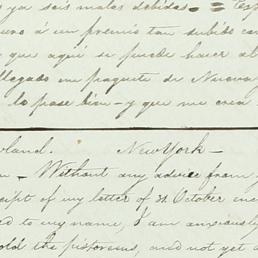 ya seis malas debidas
á un premio tan subido
que aquí se puede hacer al
llegado un paquete de Nueva
lo pase bien - y que me crea
land. New York -
Without any advice from
of my letter of 21 October
to my name, I am anxiously
the pistareens, and not yet a